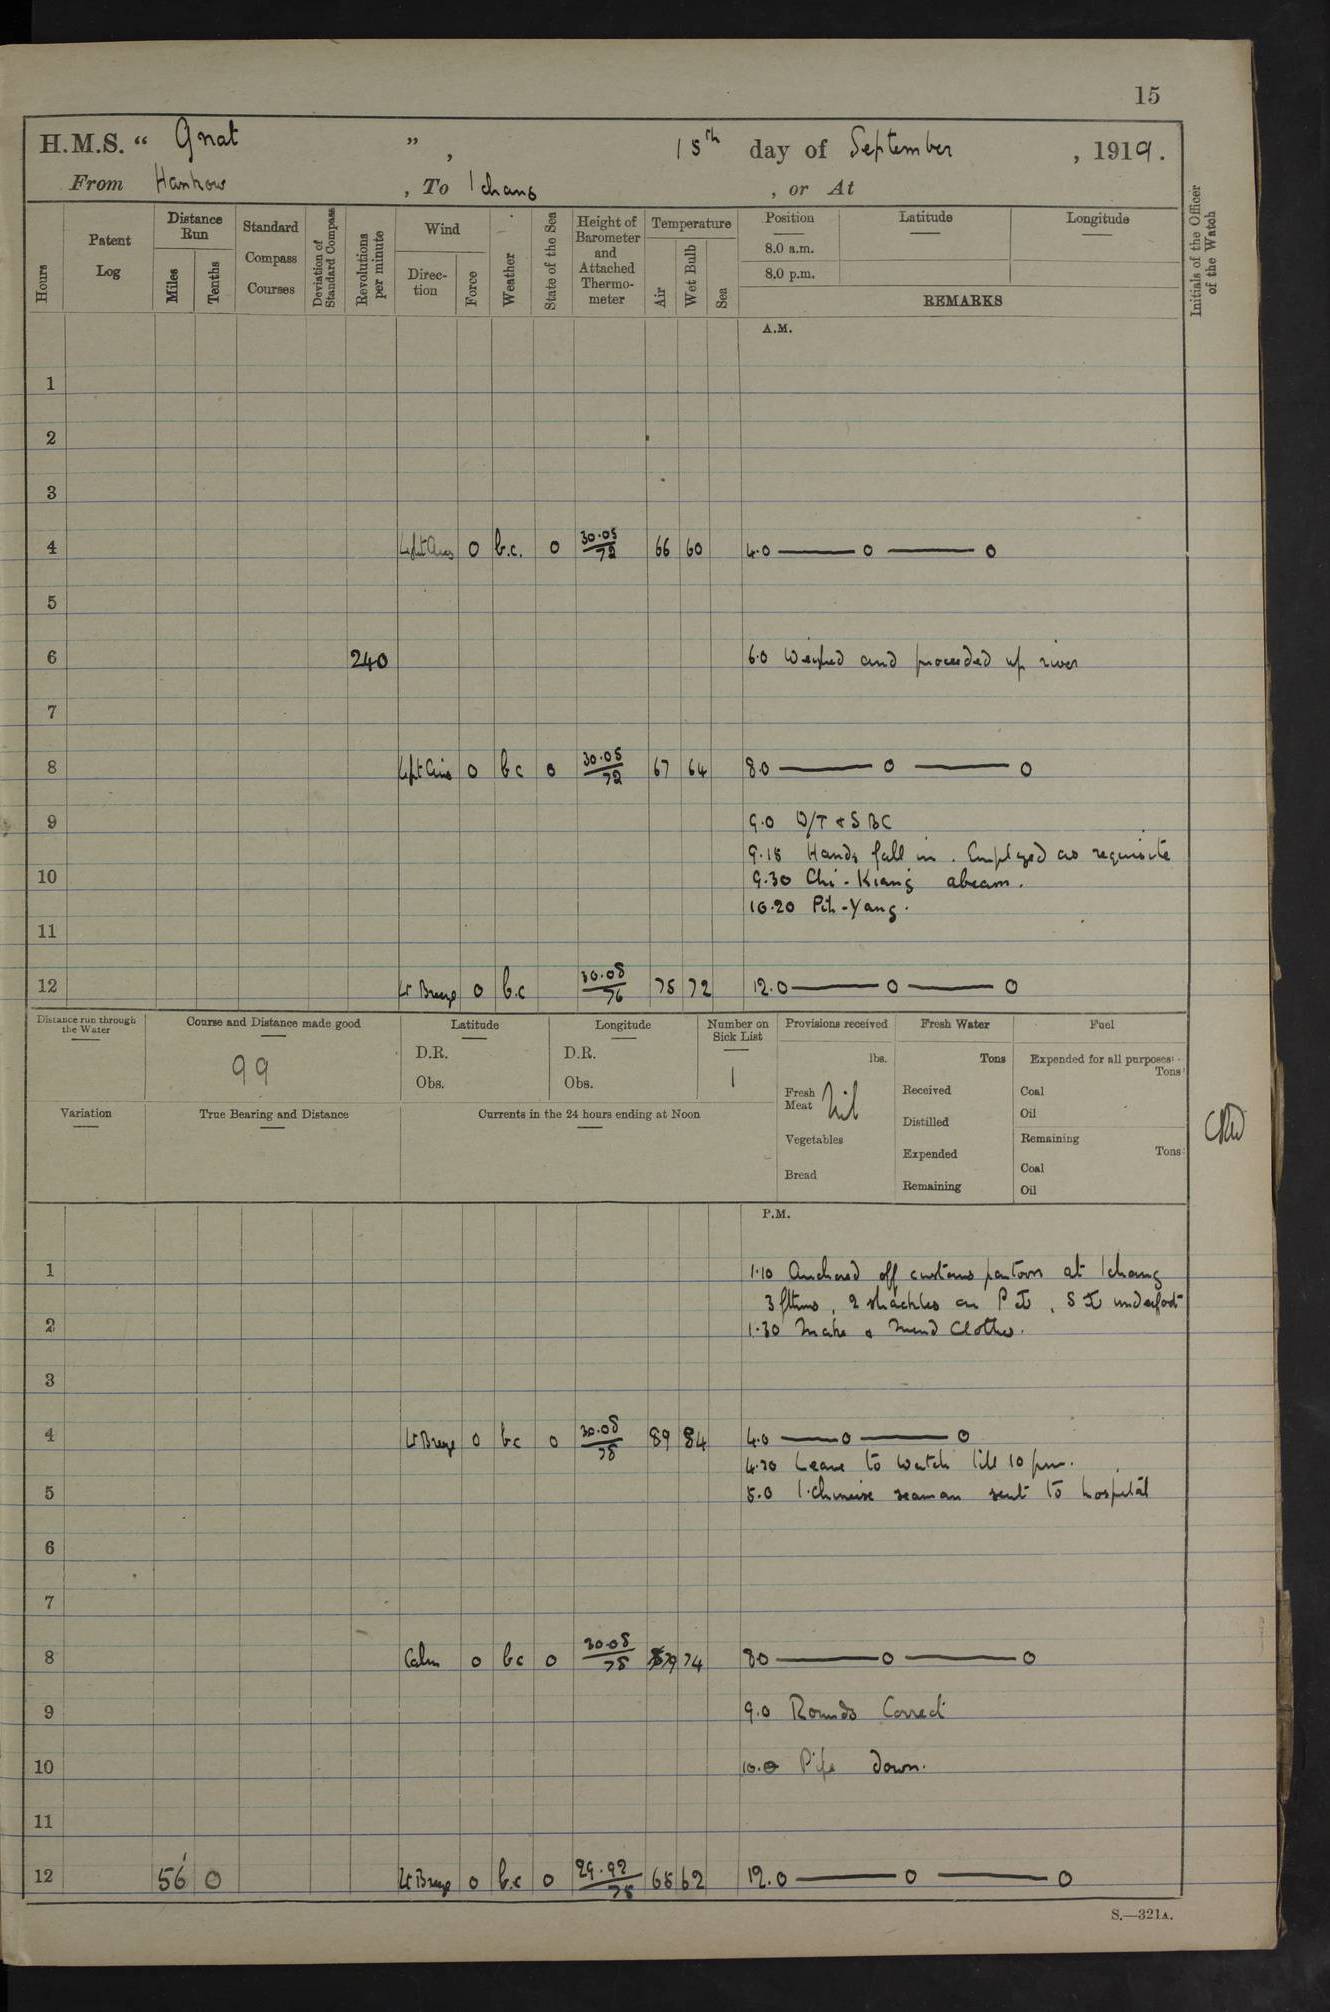 15
H.M.S. “ Gnat ” , 15th day of September , 1919.
From Hankow , To Ichang , or At
Hours
Patent Log
Distance Run
Miles
Tenths
Standard Compass Courses
Deviation of Standard Compass
Revolutions per minute
Wind
Direc-tion
Force
Weather
State of the Sea
Height of Barometer and Attached Thermo-meter
Temperature
Air
Wet Bulb
Sea
Position
8.0 a.m.
8.0 p.m.
Latitude
Longitude
REMARKS
Initials of the Officer of the Watch
A.M.
1
2
3
4 Light Airs 0 b.c. 0 30.05/72 66 60 4.0 — o — o
5
6 240 6.0 Weighed and proceeded up river
7
8 Light Airs 0 bc 0 30.05/72 67 64 8.0 — o — o
9 9.0 W/T & SBC
9.15 Hands fall in. Employed as requisite
10 9.30 Chi-Kiang abeam.
10.20 Pih-Yang.
11
12 Lt Breeze 0 b.c 30.05/76 75 72 12.0 — o — o
Distance run through the Water
Course and Distance made good
99
Latitude
D.R.
Obs.
Longitude
D.R.
Obs.
Number on Sick List
1
Provisions received
lbs.
Fresh Meat Nil
Vegetables
Bread
Fresh Water
Tons
Received
Distilled
Expended
Remaining
Fuel
Expended for all purposes:-
Tons
Coal
Oil
Remaining
Tons
Coal
Oil
Variation
True Bearing and Distance
Currents in the 24 hours ending at Noon
P.M.
1 1.10 Anchored off customs pontoon at Ichang
3 fthms, 2 shackles on P , S underfoot
2 1.30 Make & Mend Clothes.
3
4 Lt Breeze 0 bc 0 30.05/78 89 84 4.0 — o — o
4.30 Leave to watch till 10 pm.
5 5.0 1 chinese seaman sent to hospital
6
7
8 Calm 0 bc 0 30.05/78 79 74 8.0 — o — o
9 9.0 Rounds Correct
10 10.0 Pipe down.
11
12 56 0 Lt Breeze 0 b.c 0 29.92/75 65 62 12.0 — o — o
S.—321A.